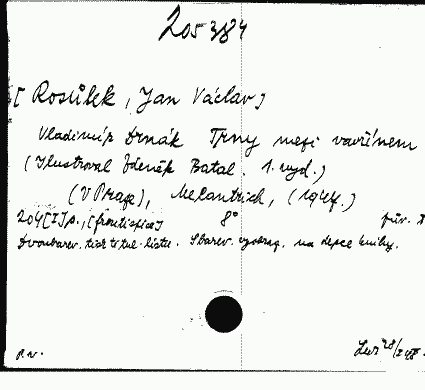 205384
[Rosůlek, Jan Václav]
Vladimír Drnák Trny mezi vavřínem
(Ilustroval Zdeněk Batal. 1. vyd.)
(V Praze), Melantrich, (1944.)
204 [I] p., [frontispice] 8° pův.
Dvoubarev. tisk titul. listu. barev. vyobraz. na desce knihy.